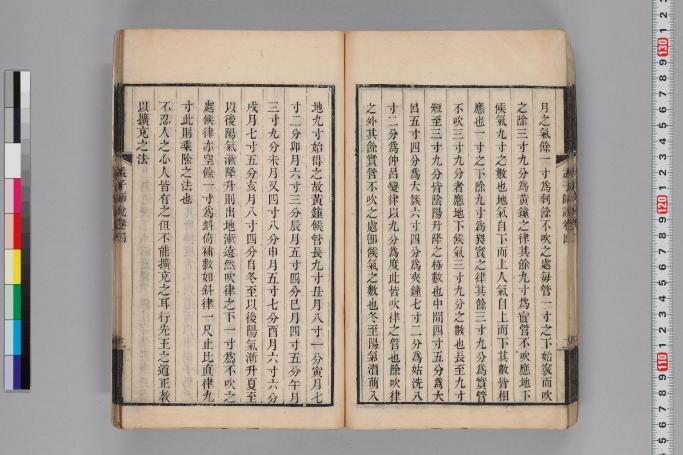 月之氣餘一寸為剩餘不吹之處每管一寸之下始竅而吹
之除三寸九分為黃鐘之律其餘九寸為實管不吹應地下
候氣九寸之數也地氣自下而上人氣自上而下其數皆相
應也一寸之下除九寸為蕤賓之律其餘三寸九分為實管
不吹三寸九分者應地下候氣三寸九分之數也長至九寸
短至三寸九分皆陰陽升降之極數也中間四寸五分為大
呂五寸四分為太簇六寸四分為夾鐘七寸二分為姑洗八
寸二分為仲呂變律以九分為度此皆吹律之管也餘吹律
之外其餘實管不吹之處卽候氣之數也冬至陽氣潛萌入
地九寸始得之故黃鐘候管長九寸丑月八寸一分寅月七
寸二分卯月六寸三分辰月五寸四分巳月四寸五分午月
三寸九分未月又四寸八分申月五寸七分酉月六寸六分
戌月七寸五分亥月八寸四分自冬至以後陽氣漸升夏至
以後陽氣漸降升則出地漸遠然吹律之下一寸為不吹之
處候律亦空餘一寸為斜倚補數如斜律一尺止比直律九
寸此則乘除之法也
不忍人之心人皆有之但不能擴充之耳行先王之道正教
以擴充之法